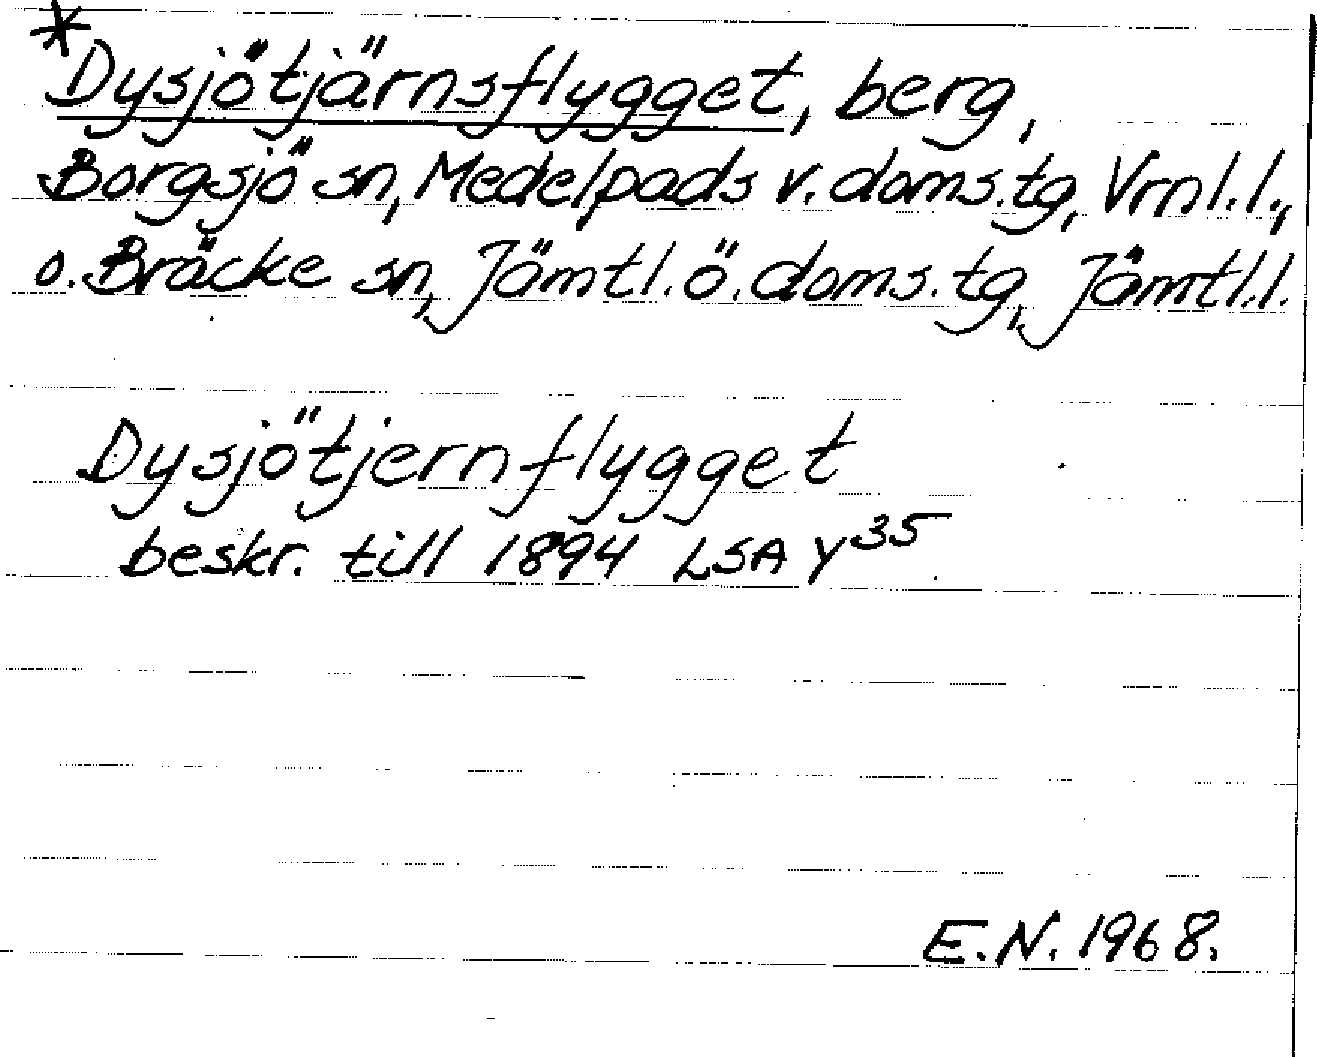 *Dysjötjärnsflygget, berg,
Borgsjö sn, Medelpads v. doms.tg, Vrnl.l.,
o. Bräcke sn, Jämtl. ö. doms.tg, Jämtl.l.
Dysjötjernflygget
beskr. till 1894 LSA Y35
E.N. 1968.